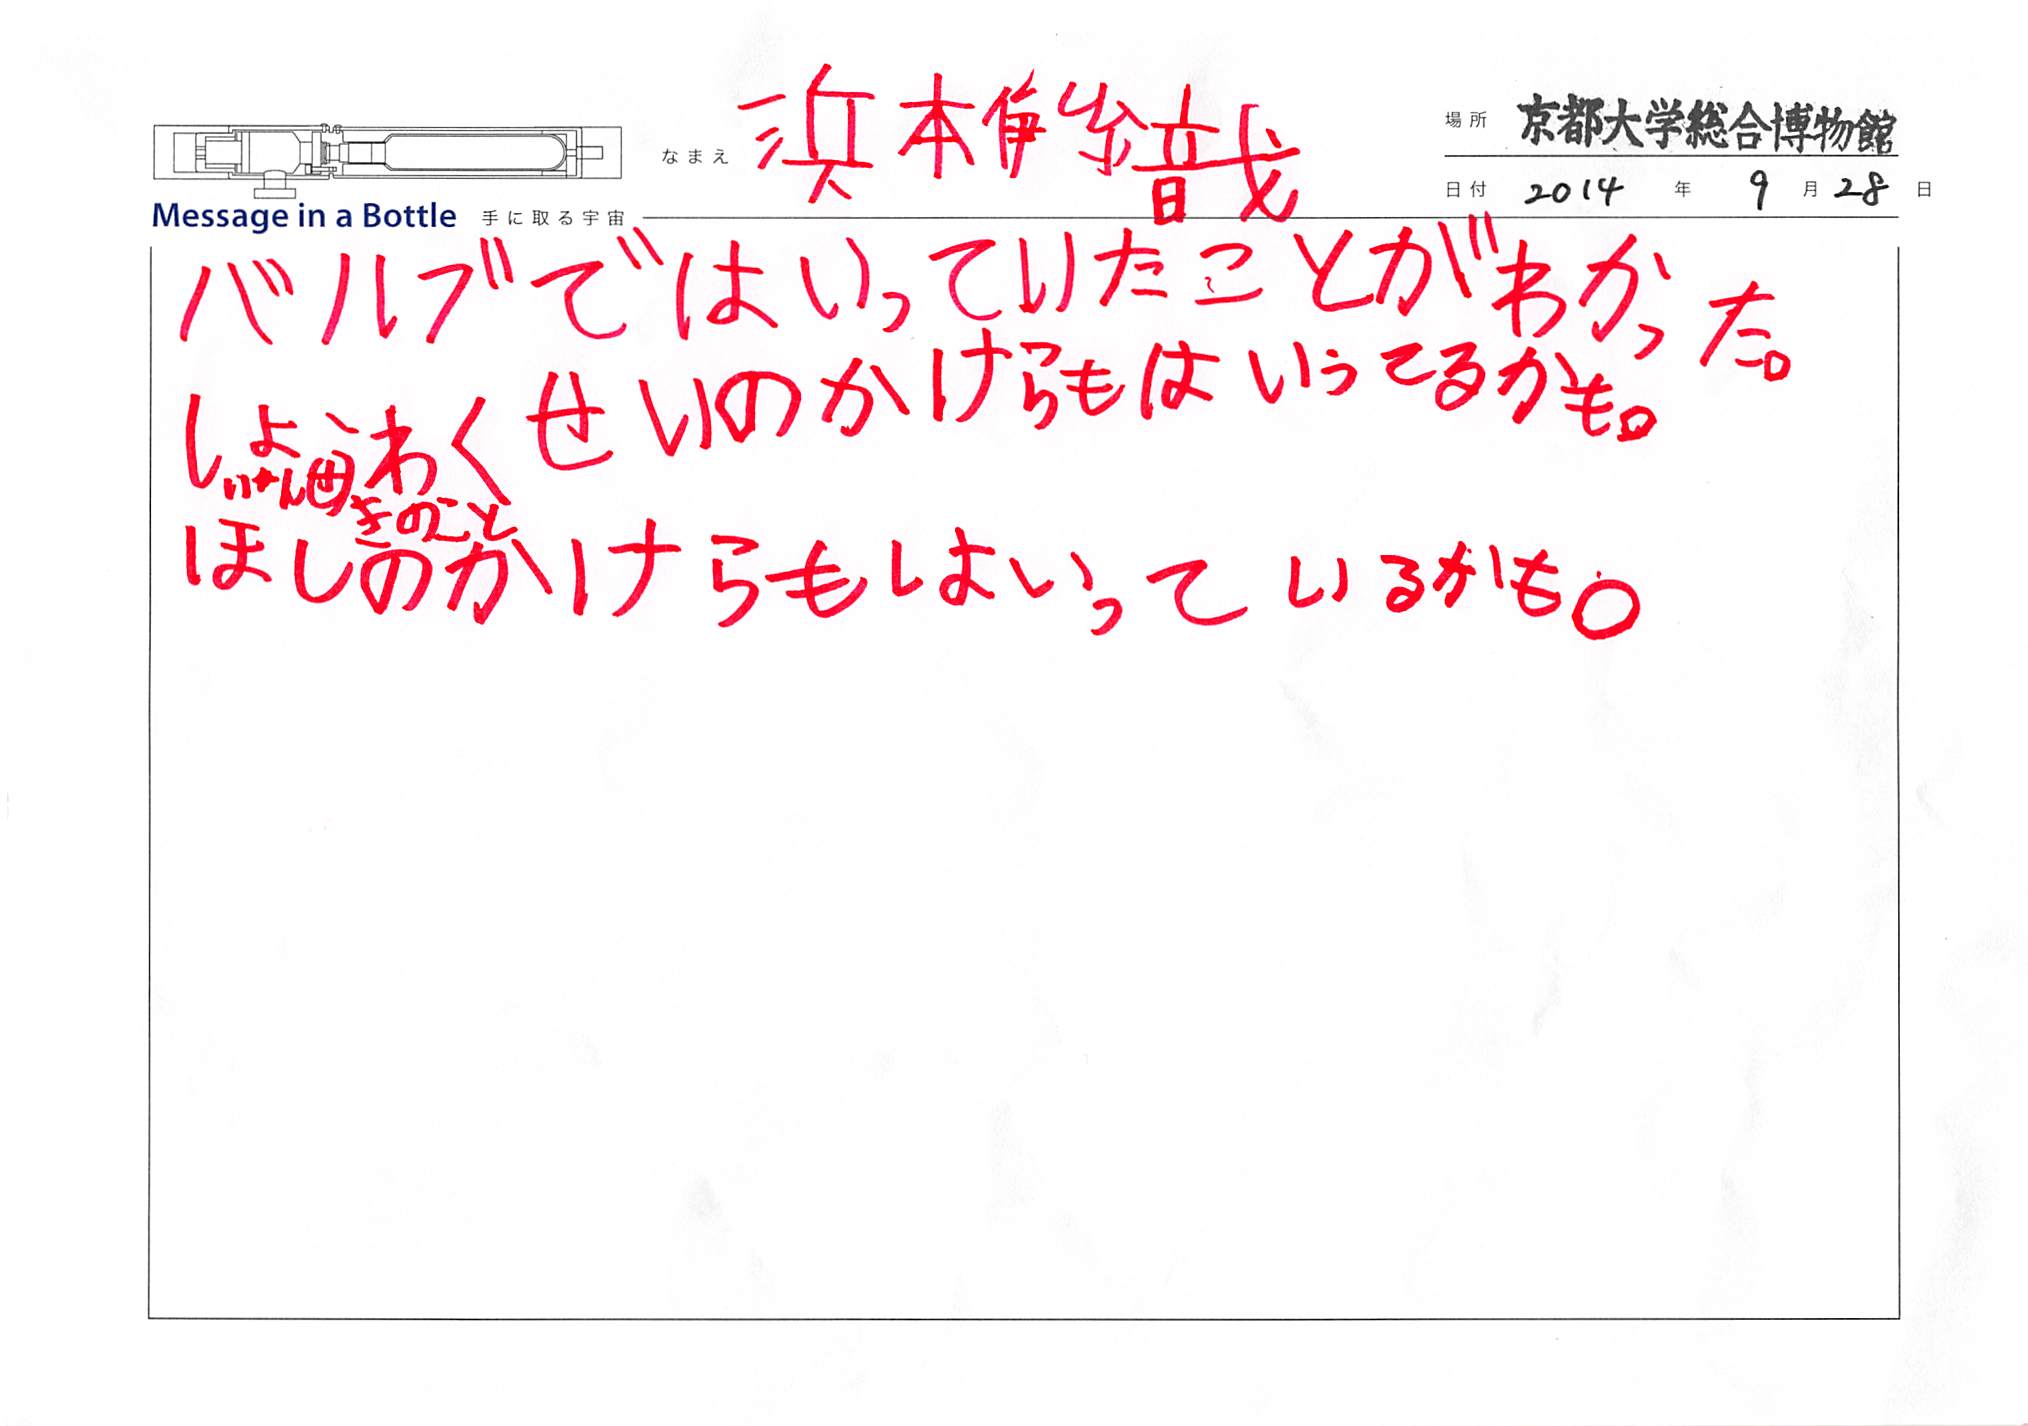 なまえ 浜本伊 音哉
場所 京都大学総合博物館
日付 2014 年 9 月 28 日
Message in a Bottle 手に取る宇宙
バルブではいっていたことがわかった。
しょうわくせいのかけらもはいってるかも。
きのこと
ほしのかけらもはいっているかも。